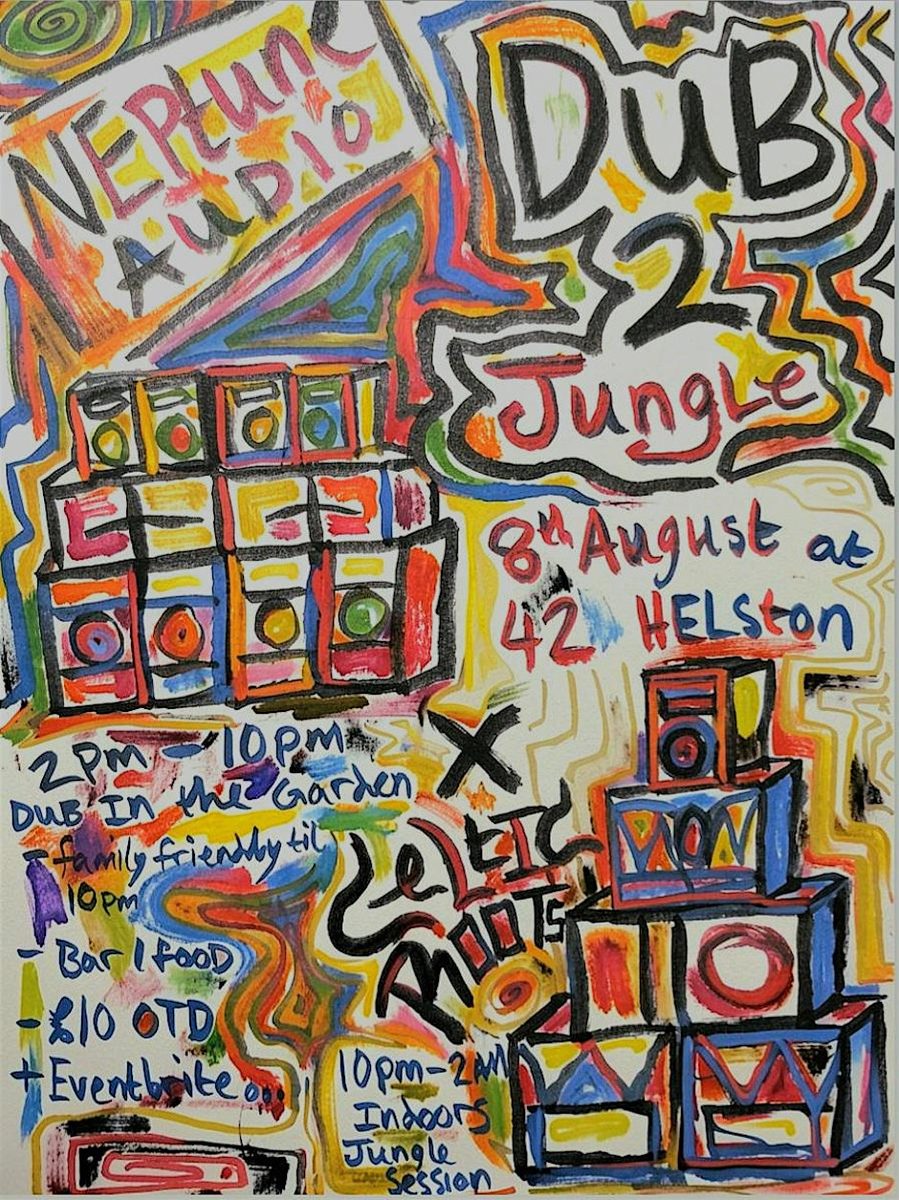 NEPtune
AUDIO
DUB
2
Jungle
8th August at
42 HELSton
X
CeLtIC
ROOTs
2pm - 10pm
DUB In the Garden
- family friendly til
10pm
- Bar / FOOD
- £10 OTD
+ Eventbrite...
10pm - 2AM
Indoors
Jungle
Session